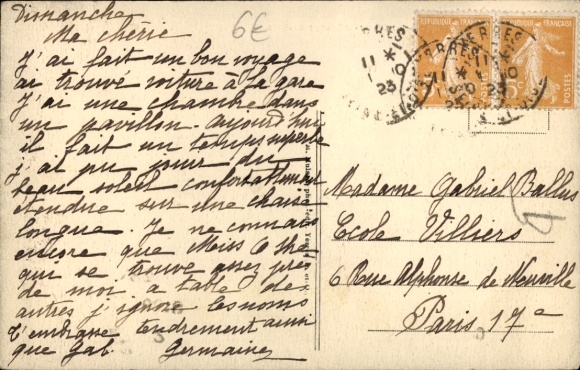 Dimanche
6€
Ma chérie
J'ai fait un bon voyage
ai trouvé voiture à la gare
J'ai une chambre dans
un pavillon. aujourd'hui
il fait un temps superbe
j'ai pu jouir du
beau soleil confortablement
étendue sur une chaise
longue. Je ne connais
encore que Meiss
qui se trouve assez près
de moi a table des
autres j'ignore les noms
T'embrasse tendrement ainsi
que Gab. Germaine
REPUBLIQUE FRANÇAISE
REPUBLIQUE FRANÇAISE
POSTES
POSTES
11 *
23
Madame Gabriel Ballus
Ecole Villiers
6 Rue Alphonse de Neuville
Paris 17e